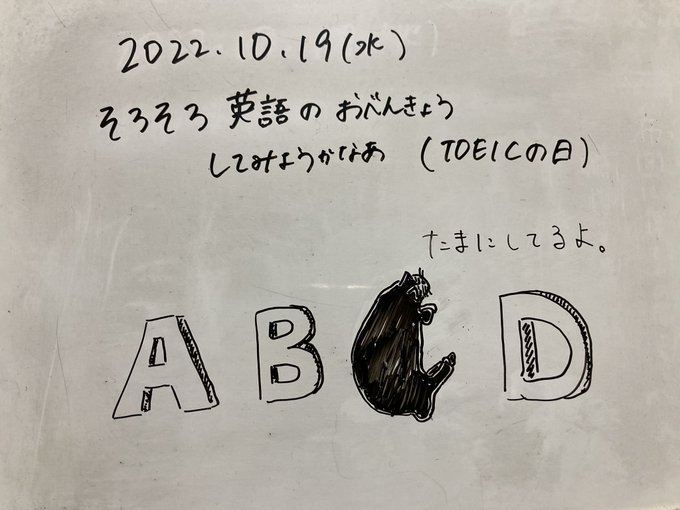 2022.10.19(水)
そろそろ 英語の おべんきょう
してみようかなぁ (TOEICの日)
たまにしてるよ。
A B D